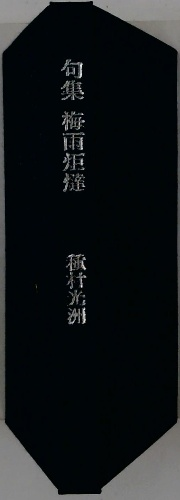 句集 梅雨炬燵
種村光洲